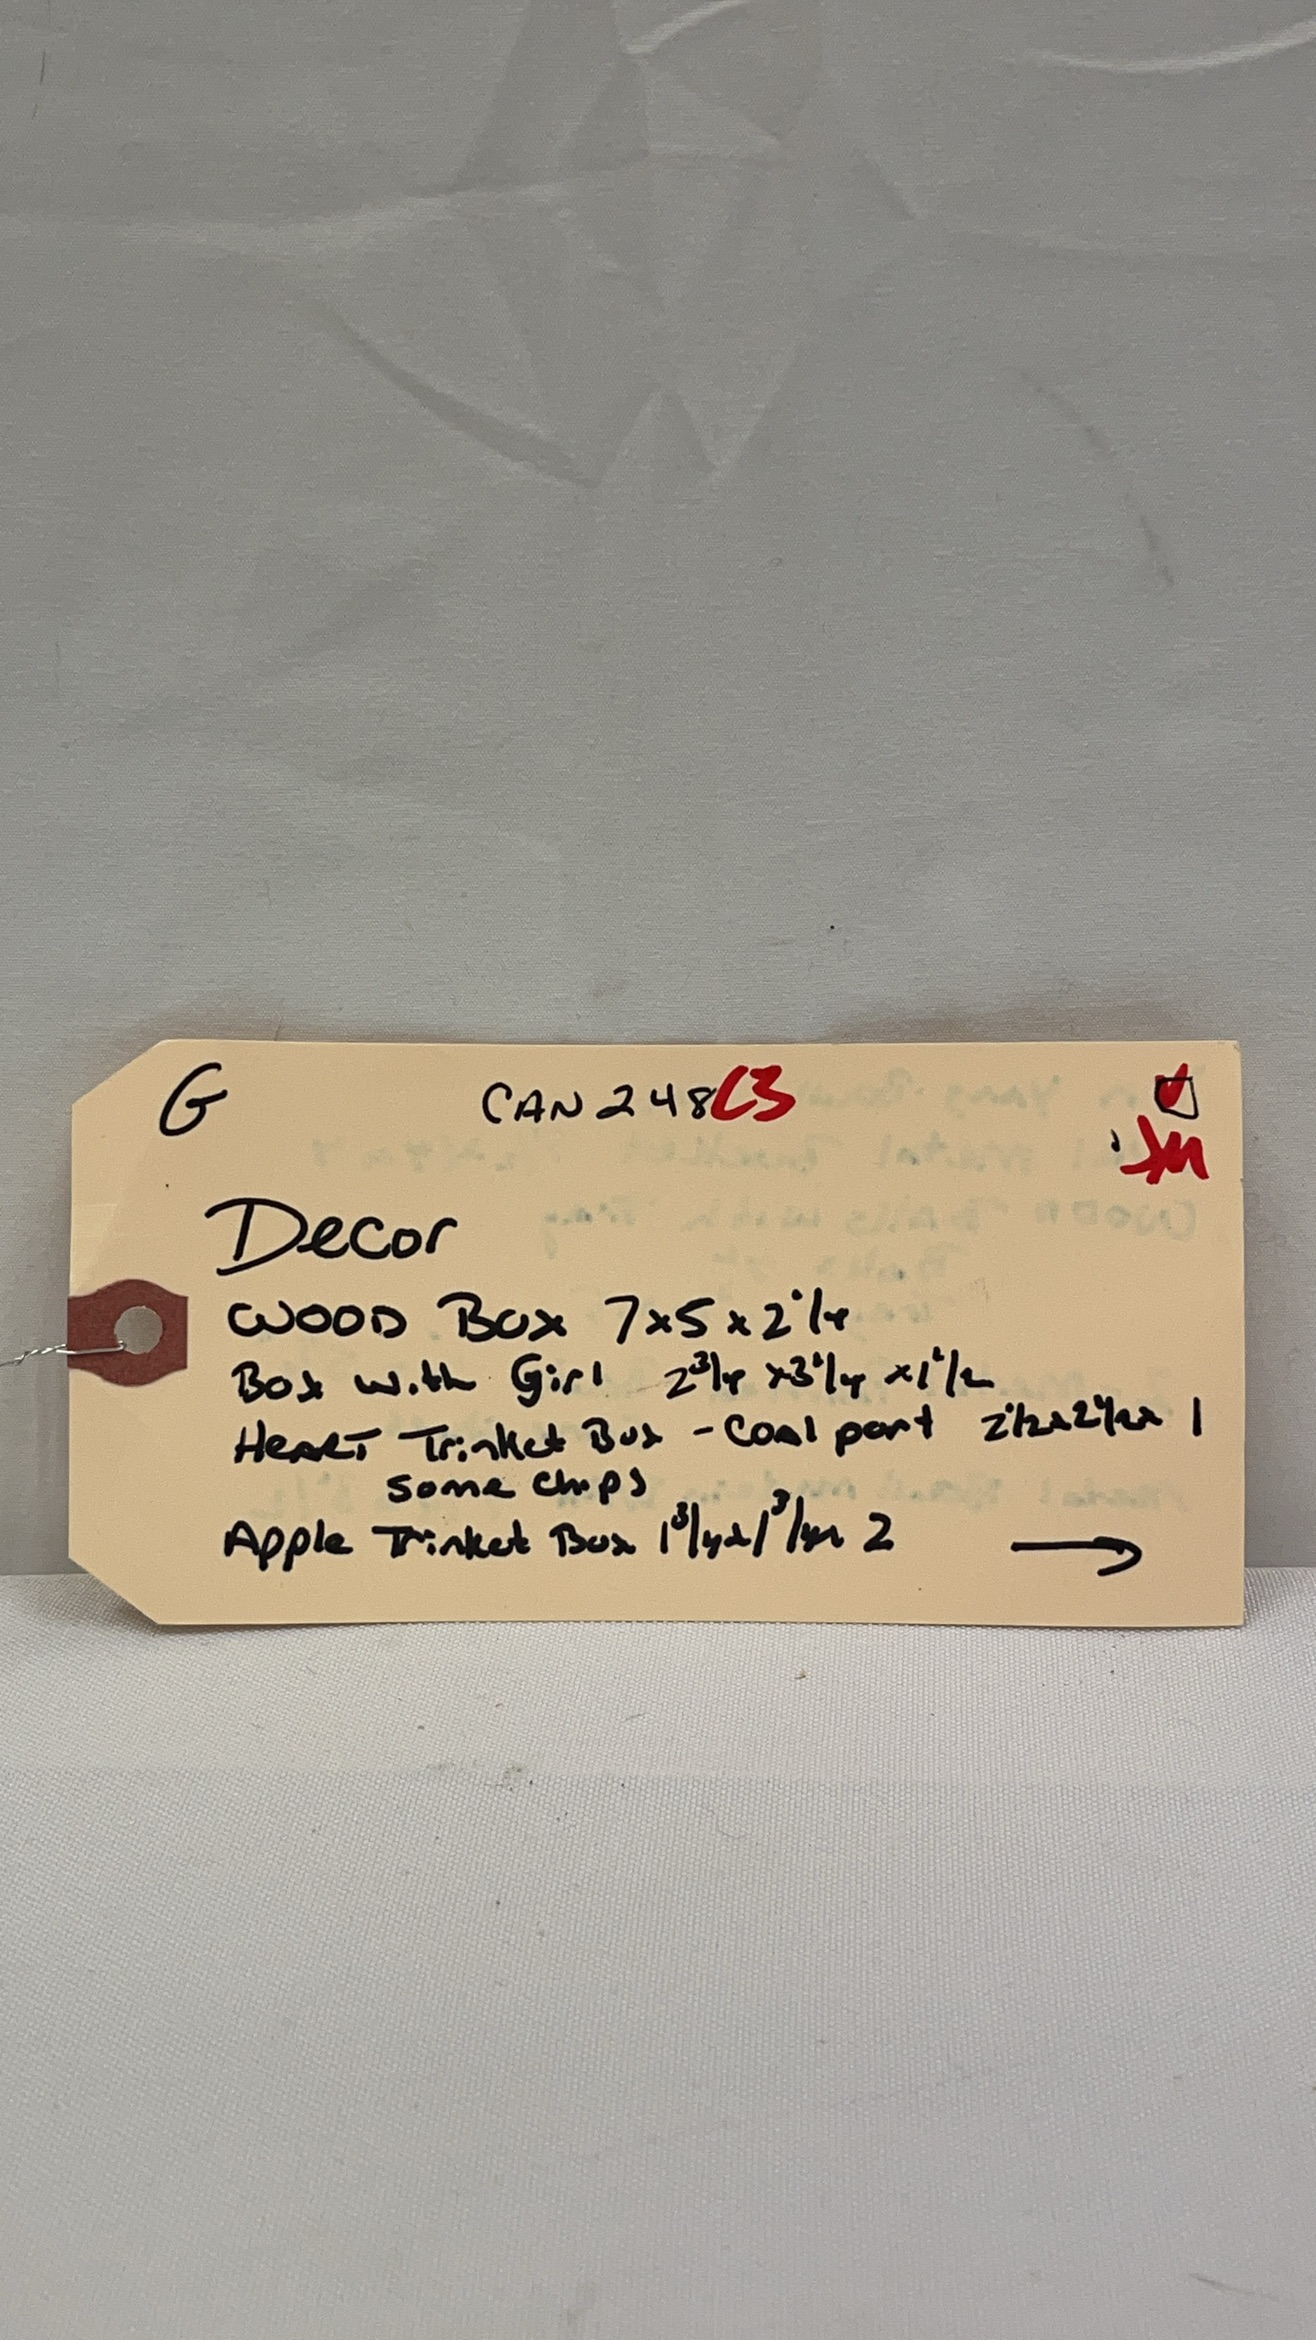 G CAN 248 C3
JM
Decor
WOOD Box 7x5x2 1/4
Box with Girl 2 3/4 x3 1/4 x1 1/2
Heart Trinket Box - Coalport 2 1/2x2 1/2x 1
some chips
Apple Trinket Box 1 3/4x1 3/4x 2 →